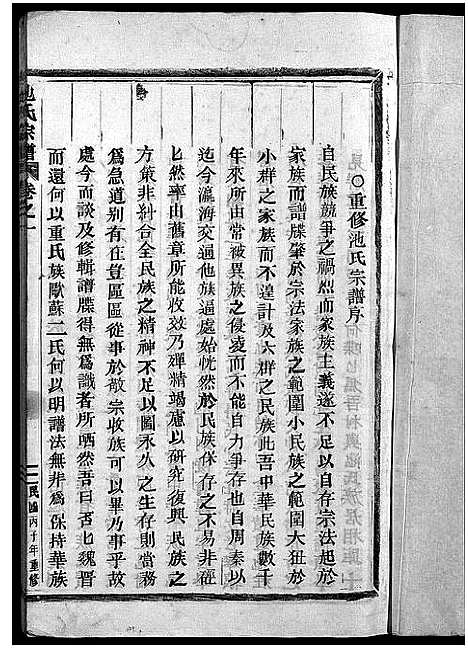 ○重修池氏宗譜序
自民族競爭之禍烈而家族主義遂不足以自存宗法起於
家族而譜牒肇於宗法家族之範圍小民族之範圍大狃於
小群之家族而不遑計及大群之民族此吾中華民族數千
年來所由常被異族之侵凌而不能自力爭存也自周秦以
迄今瀛海交通他族逼處始恍然於民族保存之不易非徒
比然率由舊章所能收效乃殫精竭慮以研究復興民族之
方策非糾合全民族之精神不足以圖永久之生存則當務
爲急道別有在豈區區從事於敬宗收族可以畢乃事乎故
處今而談及修輯譜牒得無爲識者所哂然吾曰否比魏晉
而還何以重氏族歐蘇二氏何以明譜法無非爲保持華族
池氏宗譜
卷之一
一
民國丙子年重修